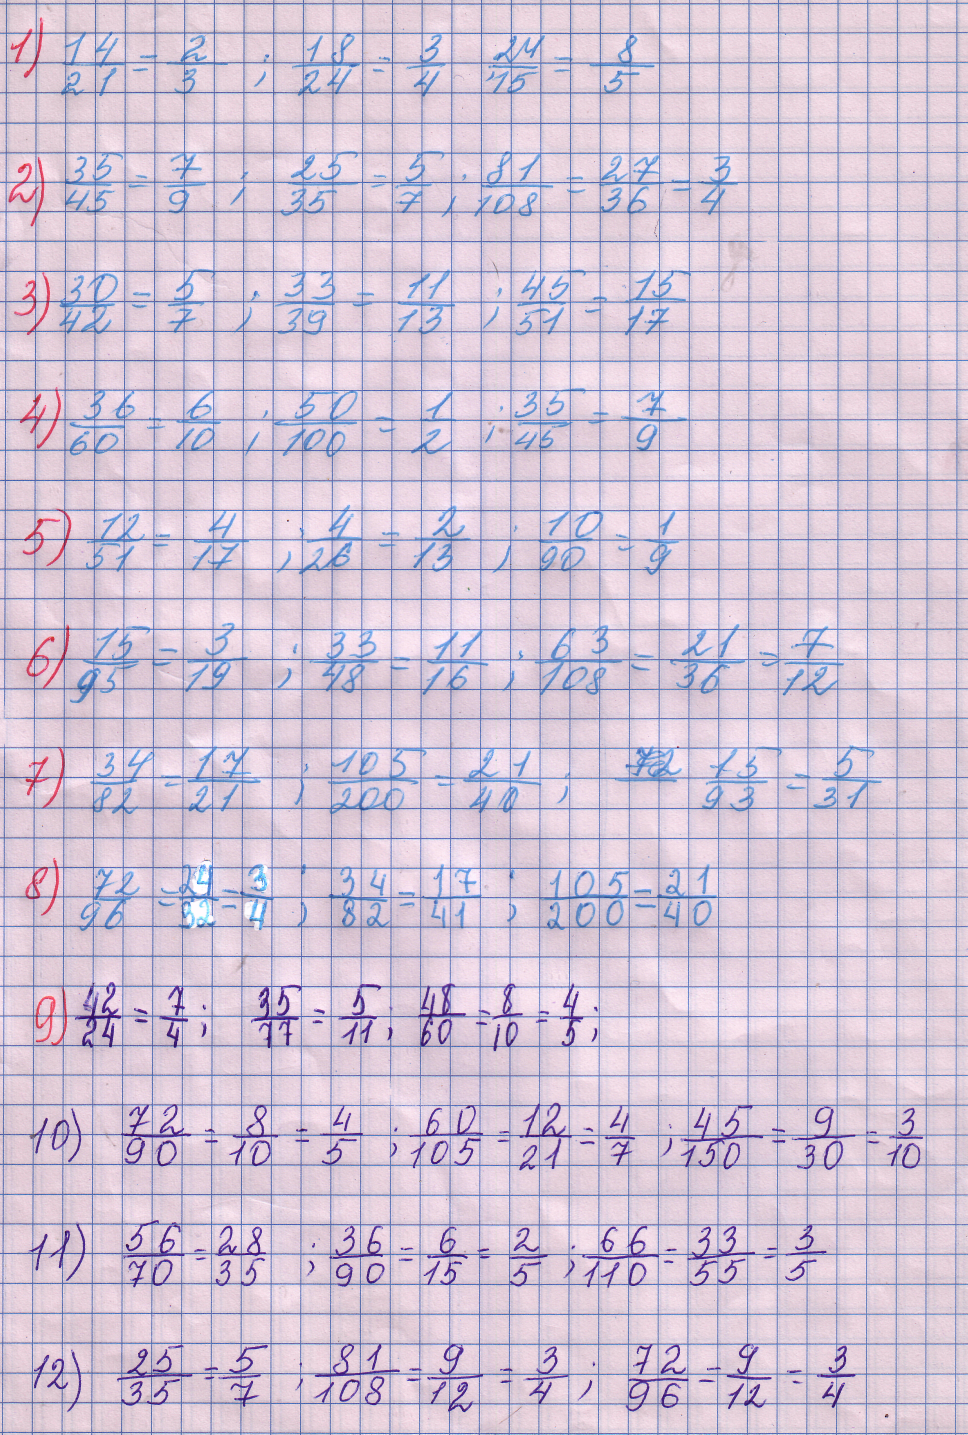 1) 14/21 = 2/3 ; 18/24 = 3/4 ; 24/15 = 8/5
2) 35/45 = 7/9 ; 25/35 = 5/7 ; 81/108 = 27/36 = 3/4
3) 30/42 = 5/7 ; 33/39 = 11/13 ; 45/51 = 15/17
4) 36/60 = 6/10 ; 50/100 = 1/2 ; 35/45 = 7/9
5) 12/51 = 4/17 ; 4/26 = 2/13 ; 10/90 = 1/9
6) 15/95 = 3/19 ; 33/48 = 11/16 ; 63/108 = 21/36 = 7/12
7) 34/82 = 17/21 ; 105/200 = 21/40 ; 15/93 = 5/31
8) 72/96 = 24/32 = 3/4 ; 34/82 = 17/41 ; 105/200 = 21/40
9) 42/24 = 7/4 ; 35/77 = 5/11 ; 48/60 = 8/10 = 4/5 ;
10) 72/90 = 8/10 = 4/5 ; 60/105 = 12/21 = 4/7 ; 45/150 = 9/30 = 3/10
11) 56/70 = 28/35 ; 36/90 = 6/15 = 2/5 ; 66/110 = 33/55 = 3/5
12) 25/35 = 5/7 ; 81/108 = 9/12 = 3/4 ; 72/96 = 9/12 = 3/4